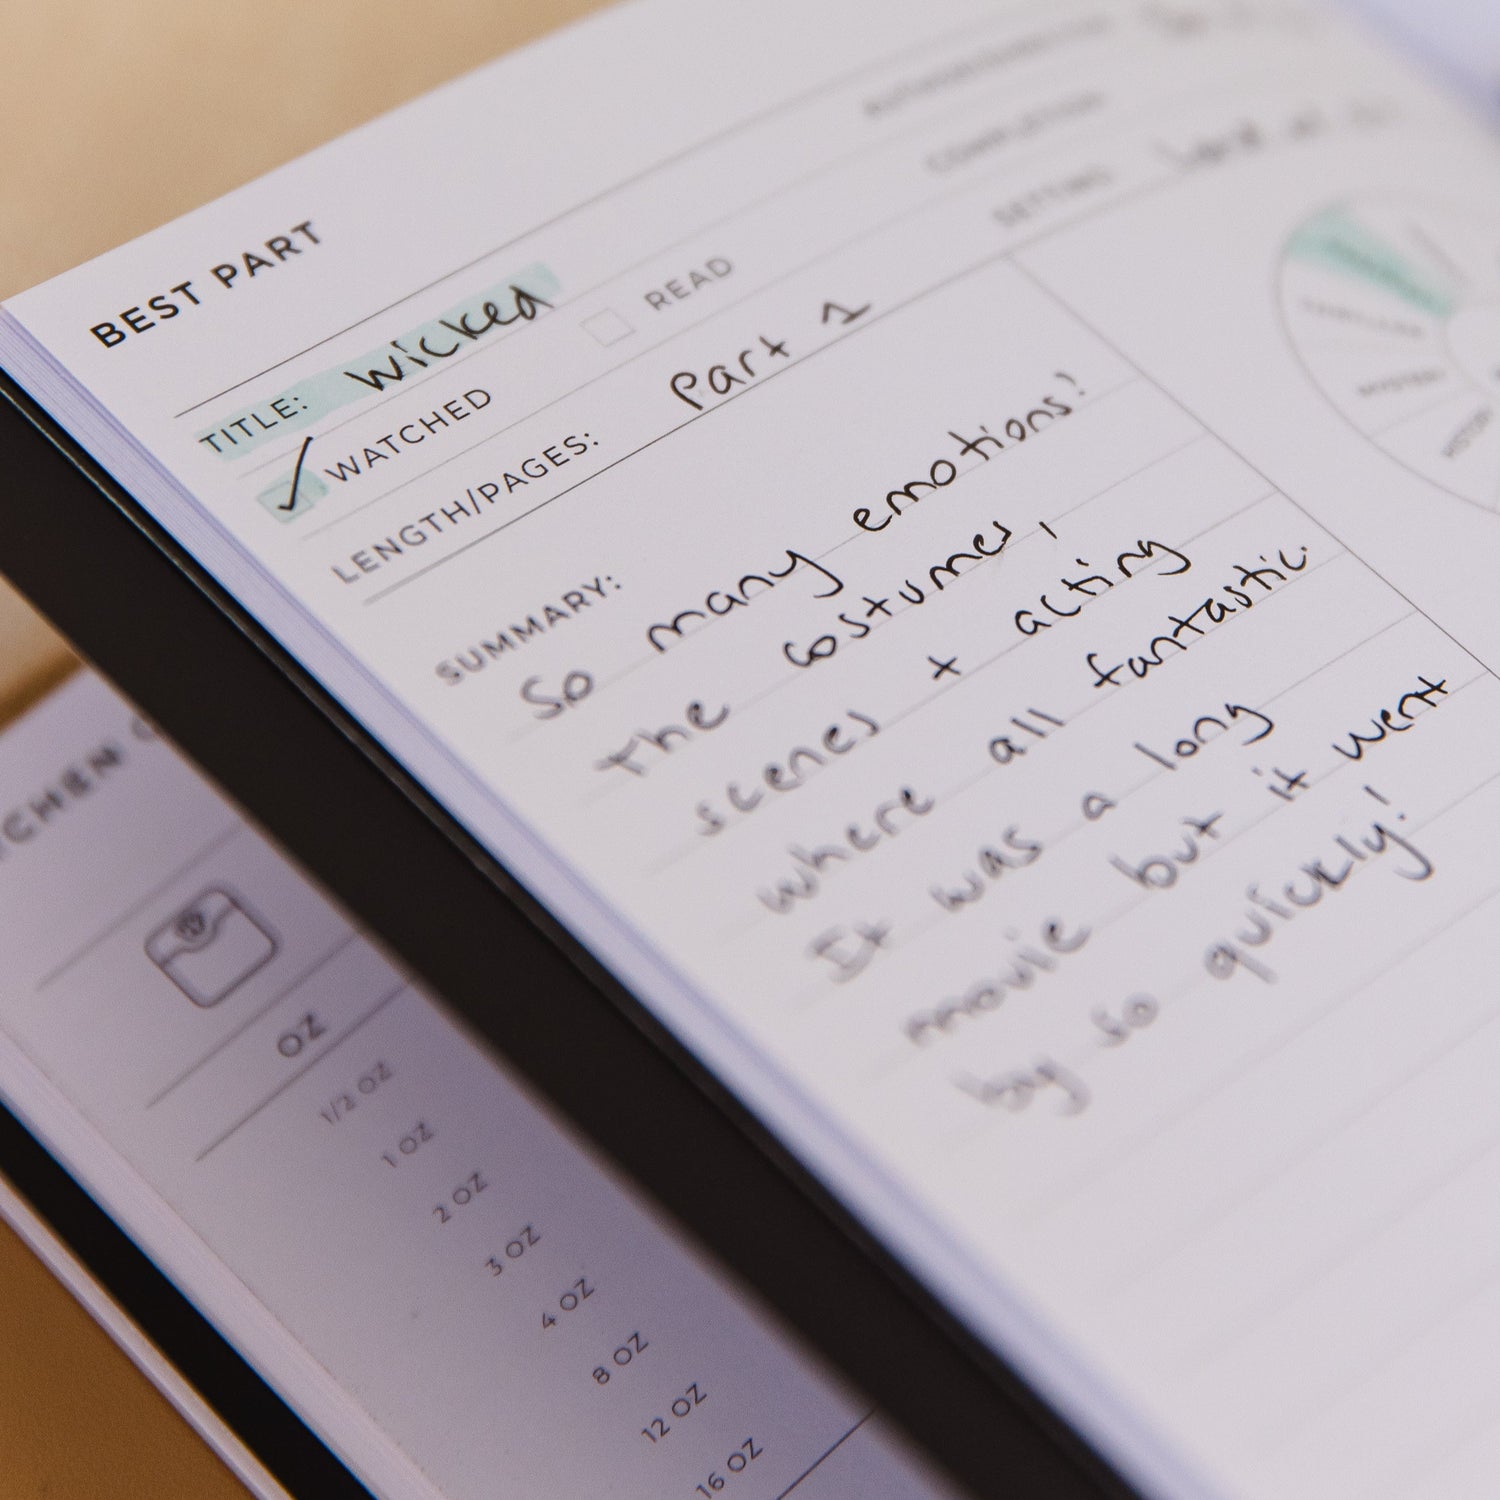 BEST PART
TITLE: wicked
WATCHED READ
LENGTH/PAGES: Part 1
COMPLETION:
SETTING:
SUMMARY:
So many emotions!
The costumes,
scenes + acting
where all fantastic.
It was a long
movie but it went
by so quickly!
THRILLER
MYSTERY
HISTORY
OZ
1/2 OZ
1 OZ
2 OZ
3 OZ
4 OZ
8 OZ
12 OZ
16 OZ